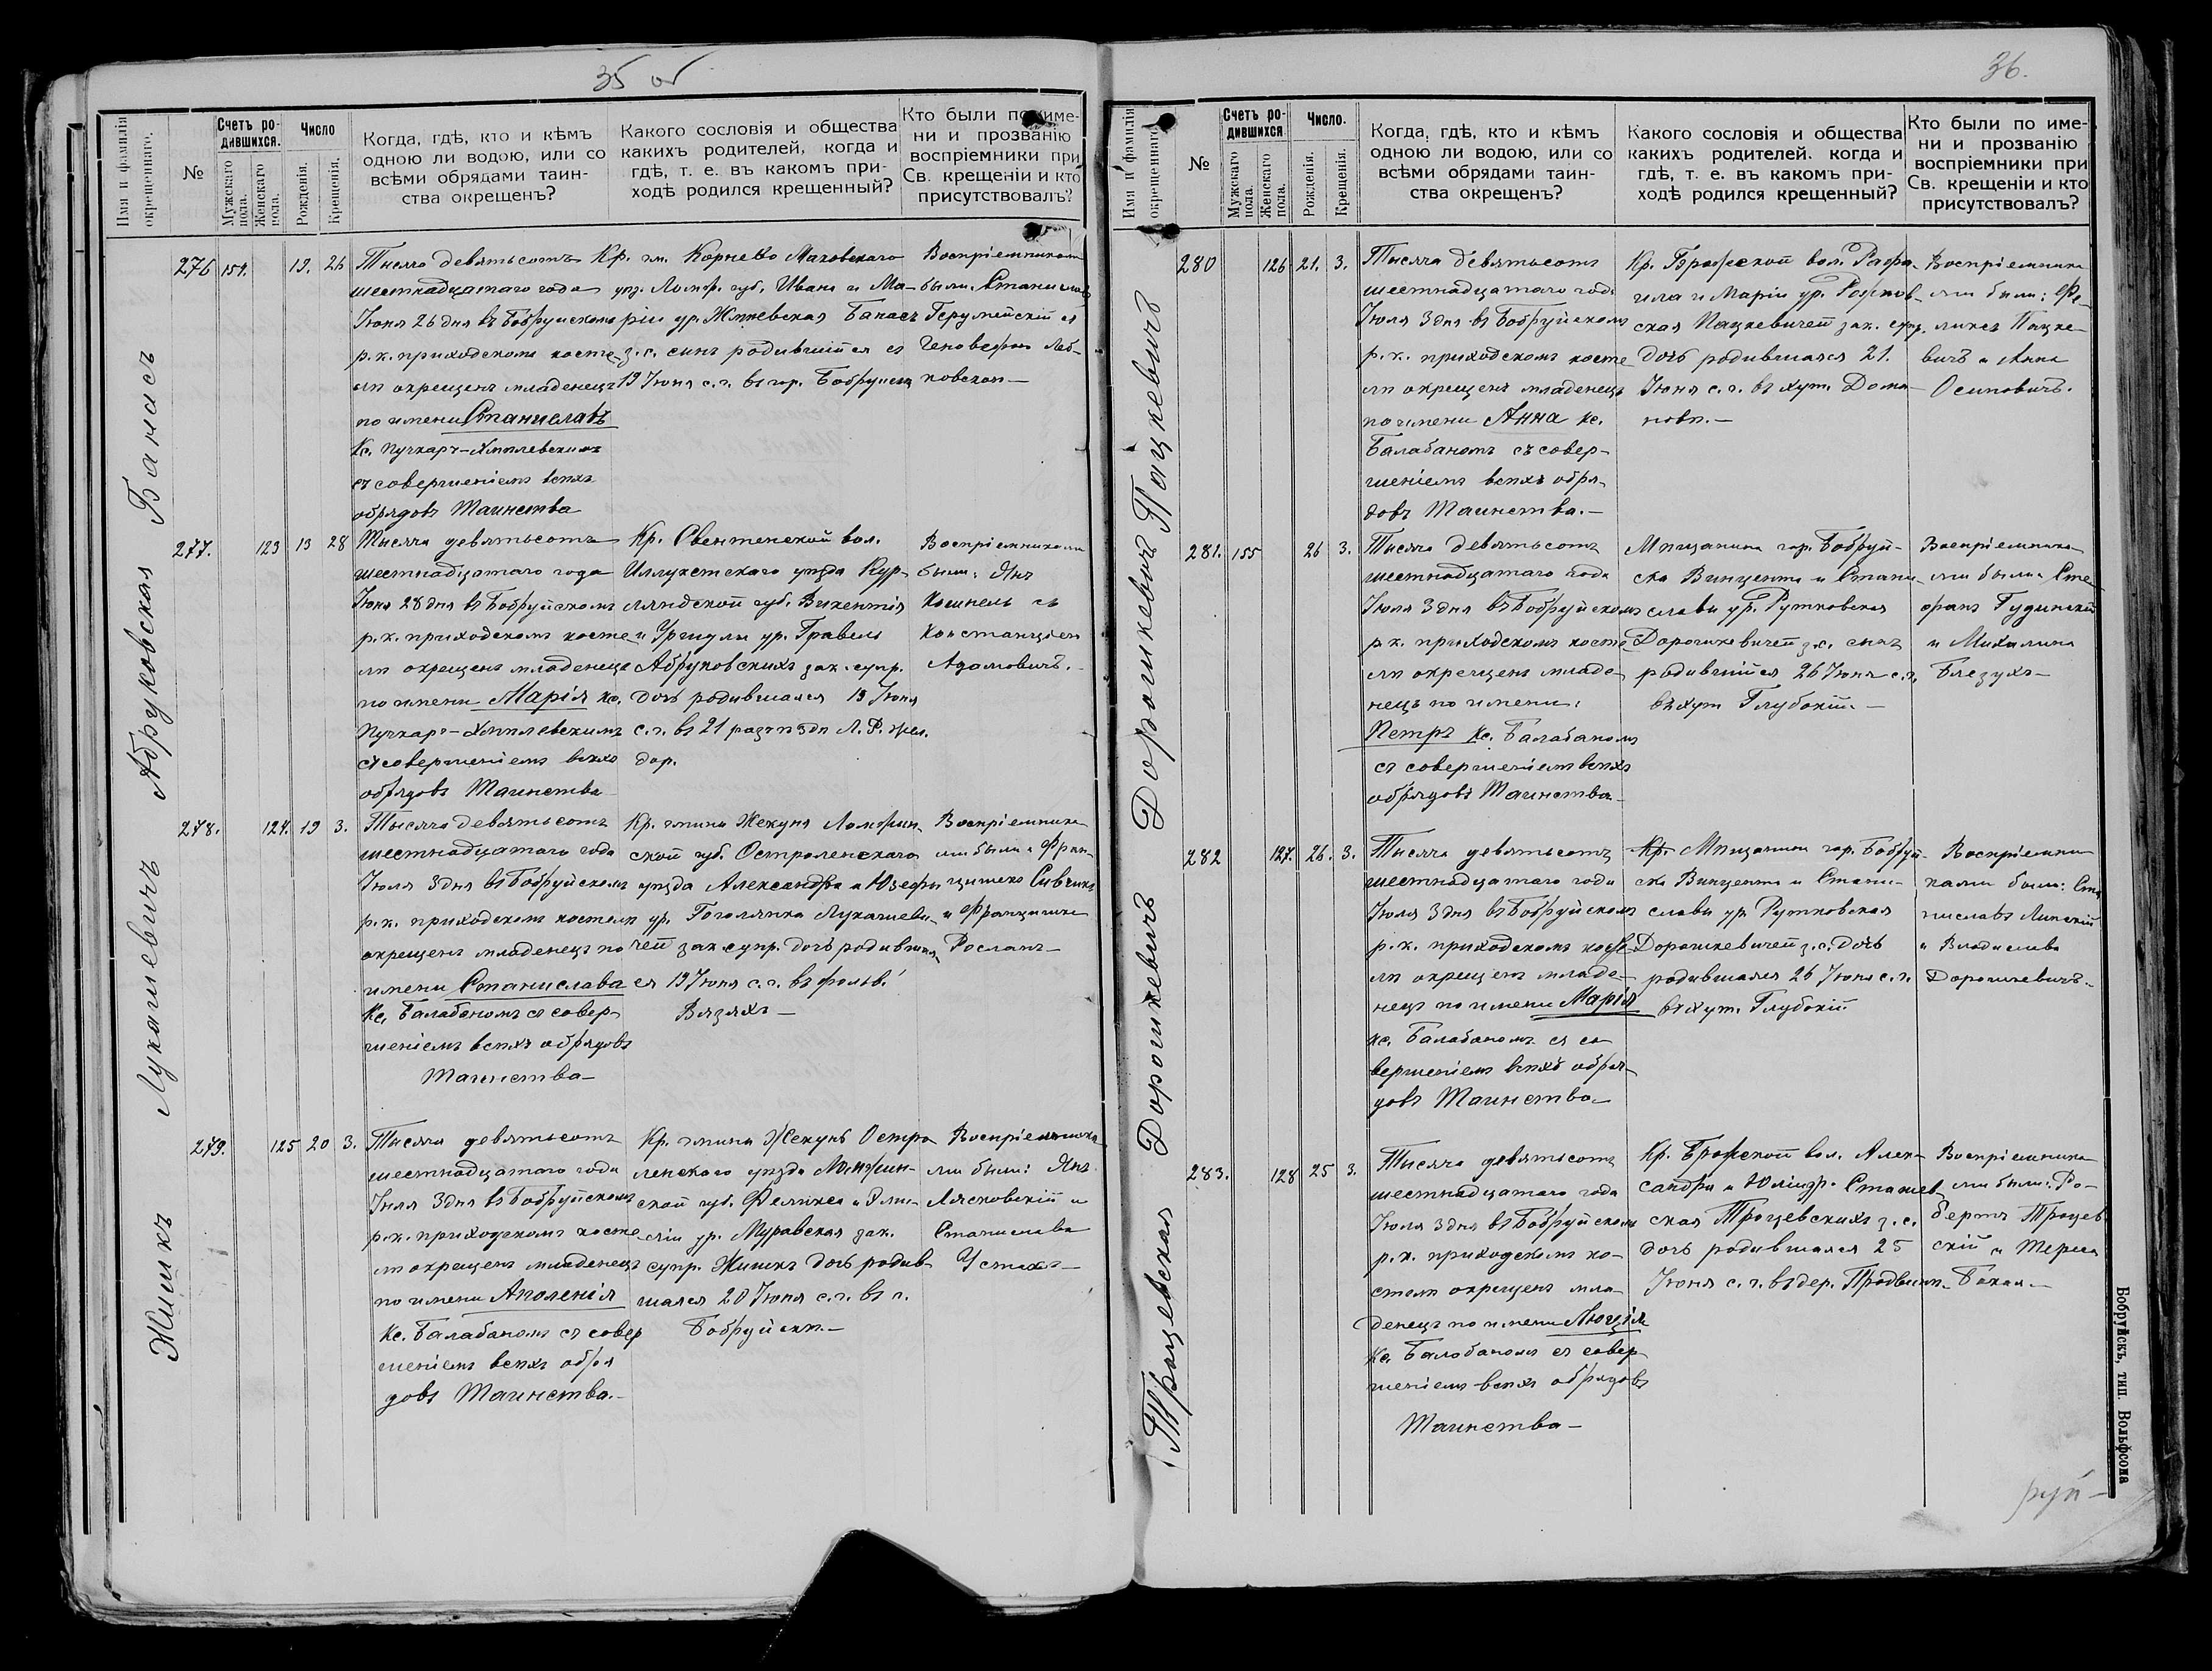 35 об
Имя и фамилія окрещеннаго.
№
Счетъ ро-
дившихся.
Мужскаго пола.
Женскаго пола.
Число
Рожденія.
Крещенія.
Когда, гдѣ, кто и кѣмъ
одною ли водою, или со
всѣми обрядами таин-
ства окрещенъ?
Какого сословія и общества
какихъ родителей, когда и
гдѣ, т. е. въ какомъ при-
ходѣ родился крещенный?
Кто были по име-
ни и прозванію
воспріемники при
Св. крещеніи и кто
присутствовалъ?
Банасъ
276 154. 19. 26
Тысяча девятьсотъ
шестнадцатаго года
Іюня 26 дня въ Бобруйскомъ
р.к. приходскомъ косте-
лѣ окрещенъ младенецъ
по имени Станиславъ
Кс. Пучкарь-Хмѣлевскимъ
съ совершеніемъ всѣхъ
обрядовъ Таинства
Кр. гм. Корнево Маховскаго
уѣз. Ломж. губ. Ивана и Ма-
ріи ур. Банасъ
з.с. сынъ родившійся
19 Іюня с.г. въ гор. Бобруйскѣ
Воспріемниками
были: Станиславъ
съ
Геновефою Леб-
ковскою —
Абруковская
277. 123 13 28
Тысяча девятьсотъ
шестнадцатаго года
Іюня 28 дня въ Бобруйскомъ
р.к. приходскомъ косте
лѣ окрещенъ младенецъ
по имени Марія кс.
Пучкарь-Хмѣлевскимъ
съ совершеніемъ всѣхъ
обрядовъ Таинства
Кр. Свентенской вол.
Иллукстскаго уѣзда Кур-
ляндской губ. Викентія
и Уршули ур. Гравель
Абруковскихъ зак. супр.
дочь родившаяся 13 Іюня
с.г. въ 21 разъѣздѣ Л. Р. жел.
дор.
Воспріемниками
были: Янъ
съ
Констанціею
Адамовичъ. —
Лукашевичъ
278. 124. 19 3.
Тысяча девятьсотъ
шестнадцатаго года
Іюля 3 дня въ Бобруйскомъ
р.к. приходскомъ костелѣ
окрещенъ младенецъ по
имени Станислава
Кс. Балабаномъ съ совер-
шеніемъ всѣхъ обрядовъ
Таинства —
Кр. гмины Жекунь Ломжин-
ской губ. Остроленскаго
уѣзда Александра и Юзефы
ур. Гоголянка Лукашеви-
чей зак. супр. дочь родившая-
ся 19 Іюня с.г. въ фольв.
Вязяхъ —
Воспріемника-
ми были: Фран-
цишекъ
и Францишка
Росланъ —
Жишкъ
279. 125 20 3.
Тысяча девятьсотъ
шестнадцатаго года
Іюля 3 дня въ Бобруйскомъ
р.к. приходскомъ косте
лѣ окрещенъ младенецъ
по имени Аполенія
Кс. Балабаномъ съ совер
шеніемъ всѣхъ обря
довъ Таинства. —
Кр. гмины Жекунь Остро
ленскаго уѣзда Ломжин-
ской губ. Феликса и Эми-
ліи ур. Муравская зак.
супр. Жишкъ дочь родив-
шаяся 20 Іюня с.г. въ г.
Бобруйскѣ. —
Воспріемника
ми были: Янъ
Лясковскій и
Станислава
36.
Имя и фамилія окрещеннаго.
№
Счетъ ро-
дившихся
Мужскаго пола.
Женскаго пола.
Число.
Рожденія.
Крещенія.
Когда, гдѣ, кто и кѣмъ
одною ли водою, или со
всѣми обрядами таин-
ства окрещенъ?
Какого сословія и общества
какихъ родителей. когда и
гдѣ, т. е. въ какомъ при-
ходѣ родился крещенный?
Кто были по име-
ни и прозванію
воспріемники при
Св. крещеніи и кто
присутствовалъ?
Пацкевичъ
280 126 21. 3.
Тысяча девятьсотъ
шестнадцатаго года
Іюля 3 дня въ Бобруйскомъ
р.к. приходскомъ косте
лѣ окрещенъ младенецъ
по имени Анна кс.
Балабаномъ съ совер-
шеніемъ всѣхъ обря-
довъ Таинства. —
Кр. Брожской вол. Рафа-
ила и Маріи ур.
ская Пацкевичей зак. супр.
дочь родившаяся 21.
Іюня с.г. въ хут. Дома-
новѣ. —
Воспріемника
ми были: Фе-
ликсъ Пацке-
вичъ и Анна
Осиповичъ.
Дорошкевичъ
281. 155 26 3.
Тысяча девятьсотъ
шестнадцатаго года
Іюля 3 дня въ Бобруйскомъ
р.к. приходскомъ косте
лѣ окрещенъ младе-
нецъ по имени:
Петръ Кс. Балабаномъ
съ совершеніемъ всѣхъ
обрядовъ Таинства —
Мѣщанина гор. Бобруй-
ска Винцента и Стани-
славы ур. Рутковская
Дорошкевичей з.с. сынъ
родившійся 26 Іюня с.г.
въ хут. Глубокій. —
Воспріемника-
ми были: Сте
фанъ Гудинскій
и Михалина
Дорошкевичъ
282 127. 26. 3.
Тысяча девятьсотъ
шестнадцатаго года
Іюля 3 дня въ Бобруйскомъ
р.к. приходскомъ косте-
лѣ окрещенъ младе-
нецъ по имени Марія
кс. Балабаномъ съ со
вершеніемъ всѣхъ обря-
довъ Таинства —
Кр. Мѣщанина гор. Бобруй-
ска Винцента и Стани-
славы ур. Рутковская
Дорошкевичей з.с. дочь
родившаяся 26 Іюня с.г.
въ хут. Глубокій.
Воспріемни
ками были: Ста
ниславъ Липскій
и Владислава
Дорошкевичъ. —
Троцевская
283. 128 25 3.
Тысяча девятьсотъ
шестнадцатаго года
Іюля 3 дня въ Бобруйскомъ
р.к. приходскомъ ко-
стелѣ окрещенъ мла-
денецъ по имени Люція
Кс. Балабаномъ съ совер-
шеніемъ всѣхъ обрядовъ
Таинства —
Кр. Брожской вол. Алек-
сандра и Юліи ур. Сташев-
ская Троцевскихъ з.с.
дочь родившаяся 25
Іюня с.г. въ дер.
Воспріемника
ми были: Ро-
бертъ Троцев
скій и Тереса
Бобруйскъ, тип. Вольфсона